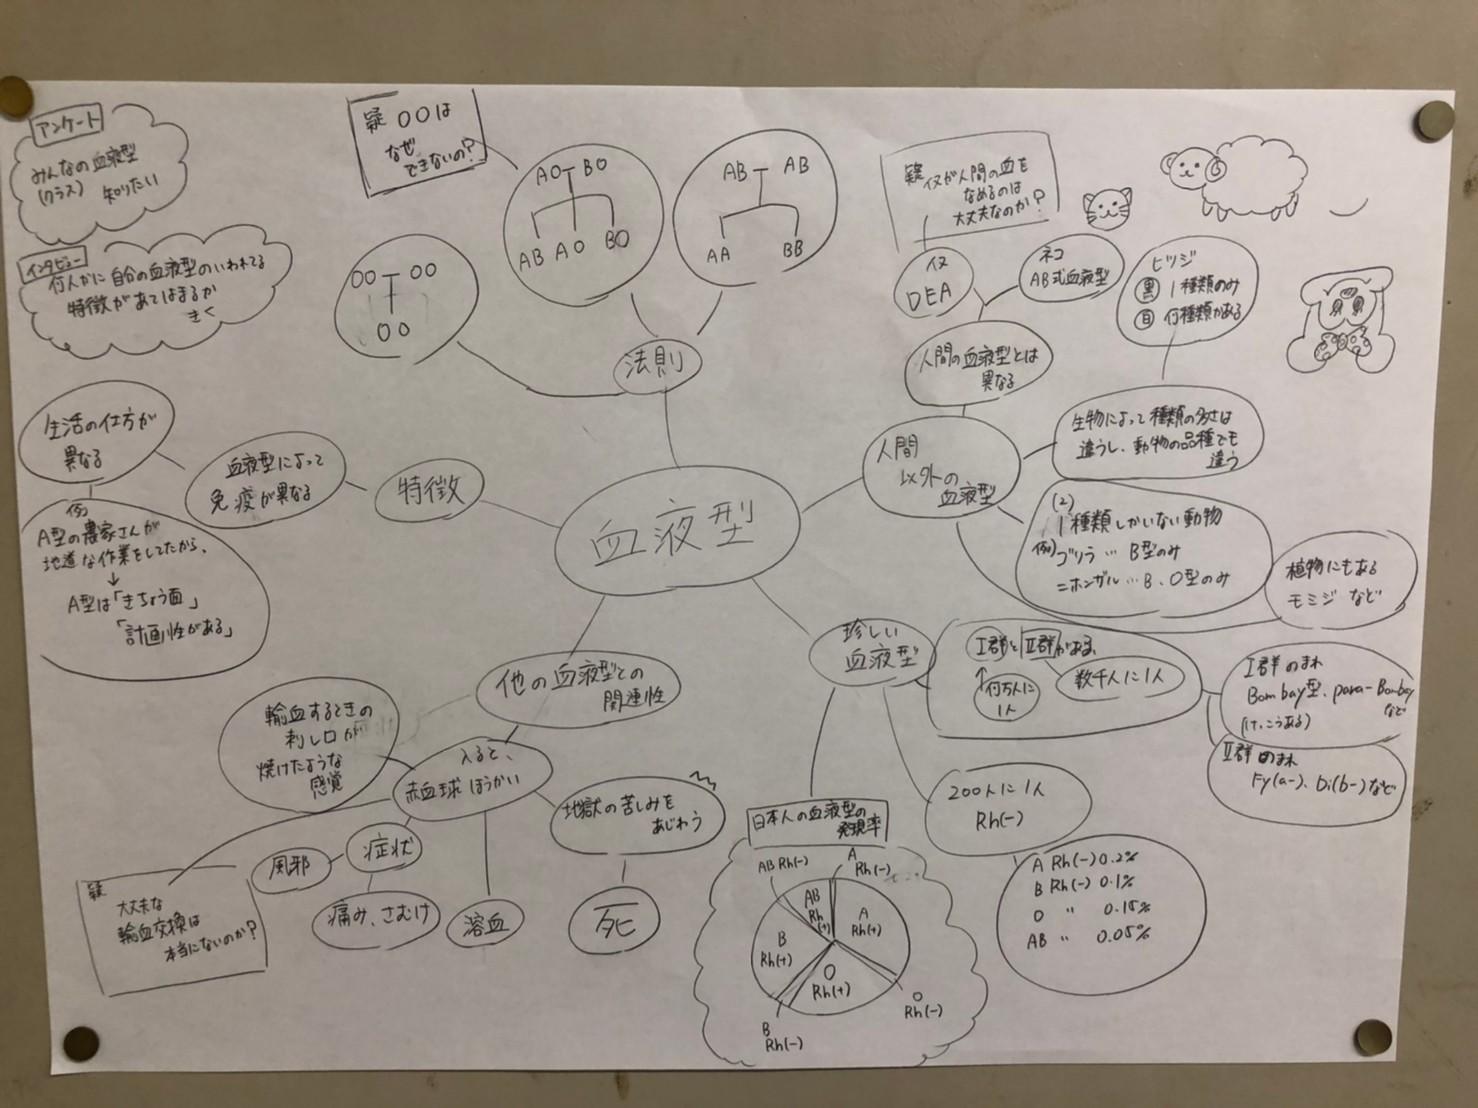 アンケート
みんなの血液型
(クラス) 知りたい
インタビュー
何人かに自分の血液型のいわれてる
特徴があてはまるか
きく
疑 OOは
なぜ
できないの?
AO BO
AB AO BO
AB AB
AA BB
OO OO
OO
法則
疑 イヌが人間の血を
なめるのは
大丈夫なのか?
イヌ
DEA
ネコ
AB式血液型
ヒツジ
黒 1種類のみ
白 何種類かある
人間の血液型とは
異なる
生物によって種類の多さは
違うし、動物の品種でも
違う
人間
以外の
血液型
(2)
1種類しかいない動物
例)ゴリラ…B型のみ
ニホンザル…B、O型のみ
植物にもある
モミジなど
生活の仕方が
異なる
血液型によって
免疫が異なる
特徴
血液型
例)
A型の農家さんが
地道な作業をしてたから、
↓
A型は「きちょう面」
「計画性がある」
珍しい
血液型
I群とII群がある
↑
何万人に
1人
数千人に1人
I群のまれ
Bombay型、para-Bombay
など
(けっこうある)
II群のまれ
Fy(a-)、Di(b-)など
200人に1人
Rh(-)
A Rh(-) 0.2%
B Rh(-) 0.1%
O 〃 0.15%
AB 〃 0.05%
他の血液型との
関連性
輸血するときの
刺し口が
焼けたような
感覚
入ると、
赤血球ほうかい
地獄の苦しみを
あじわう
死
溶血
症状
風邪
痛み、さむけ
疑
大丈夫な
輸血交換は
本当にないのか?
日本人の血液型の
発現率
AB Rh(-)
A
Rh(-)
AB
Rh
(+)
A
Rh(+)
B
Rh(+)
O
Rh(+)
O
Rh(-)
B
Rh(-)